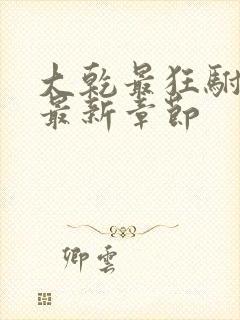 大乾最狂駙
最新章節
卿雲